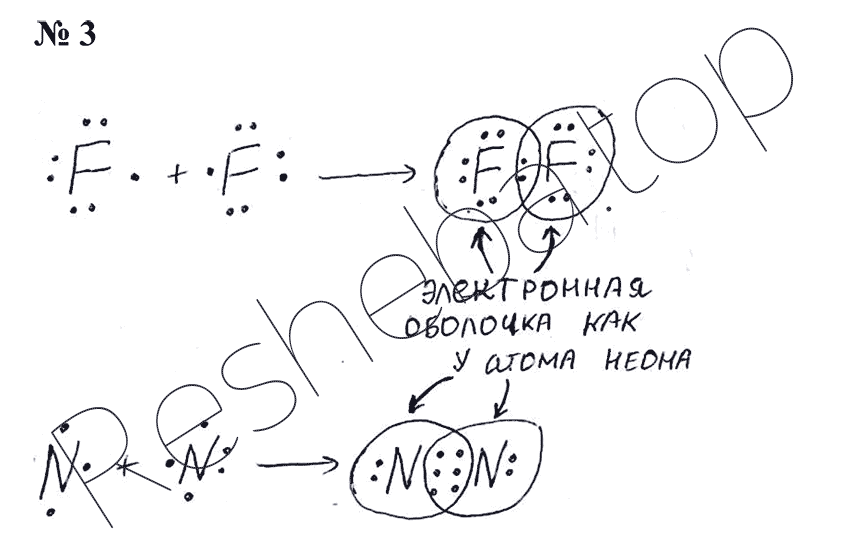 № 3
F + F → F F
ЭЛЕКТРОННАЯ
ОБОЛОЧКА КАК
У АТОМА НЕОНА
N + N → N N
Resheba.top